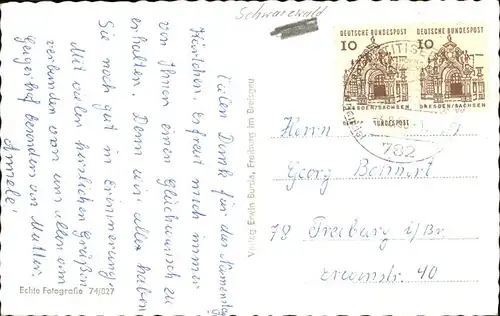 Schwarzwald
Vielen Dank für das Namenstag
Kärtchen, erfreut mich immer
von Ihnen einen Glückwunsch zu
erhalten. Denn wir alle haben
Sie noch gut in Erinnerung.
Mit vielen herzlichen Grüßen
verbunden von uns allen vom
Geigerhof besonders von Mutter.
Annele!
Echte Fotografie 74/827
Verlag Erwin Burda, Freiburg im Breisgau
DEUTSCHE BUNDESPOST
10
DRESDEN/SACHSEN
DEUTSCHE BUNDESPOST
10
DRESDEN/SACHSEN
BUNDESPOST
782
Herrn
Georg
78 Freiburg i/Br.
40